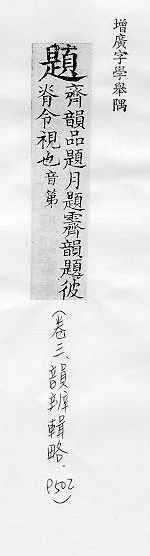 增廣字學舉隅
題
齊韻品題月題霽韻題彼
脊令視也音第
(卷三、韻辨輯略. P502)